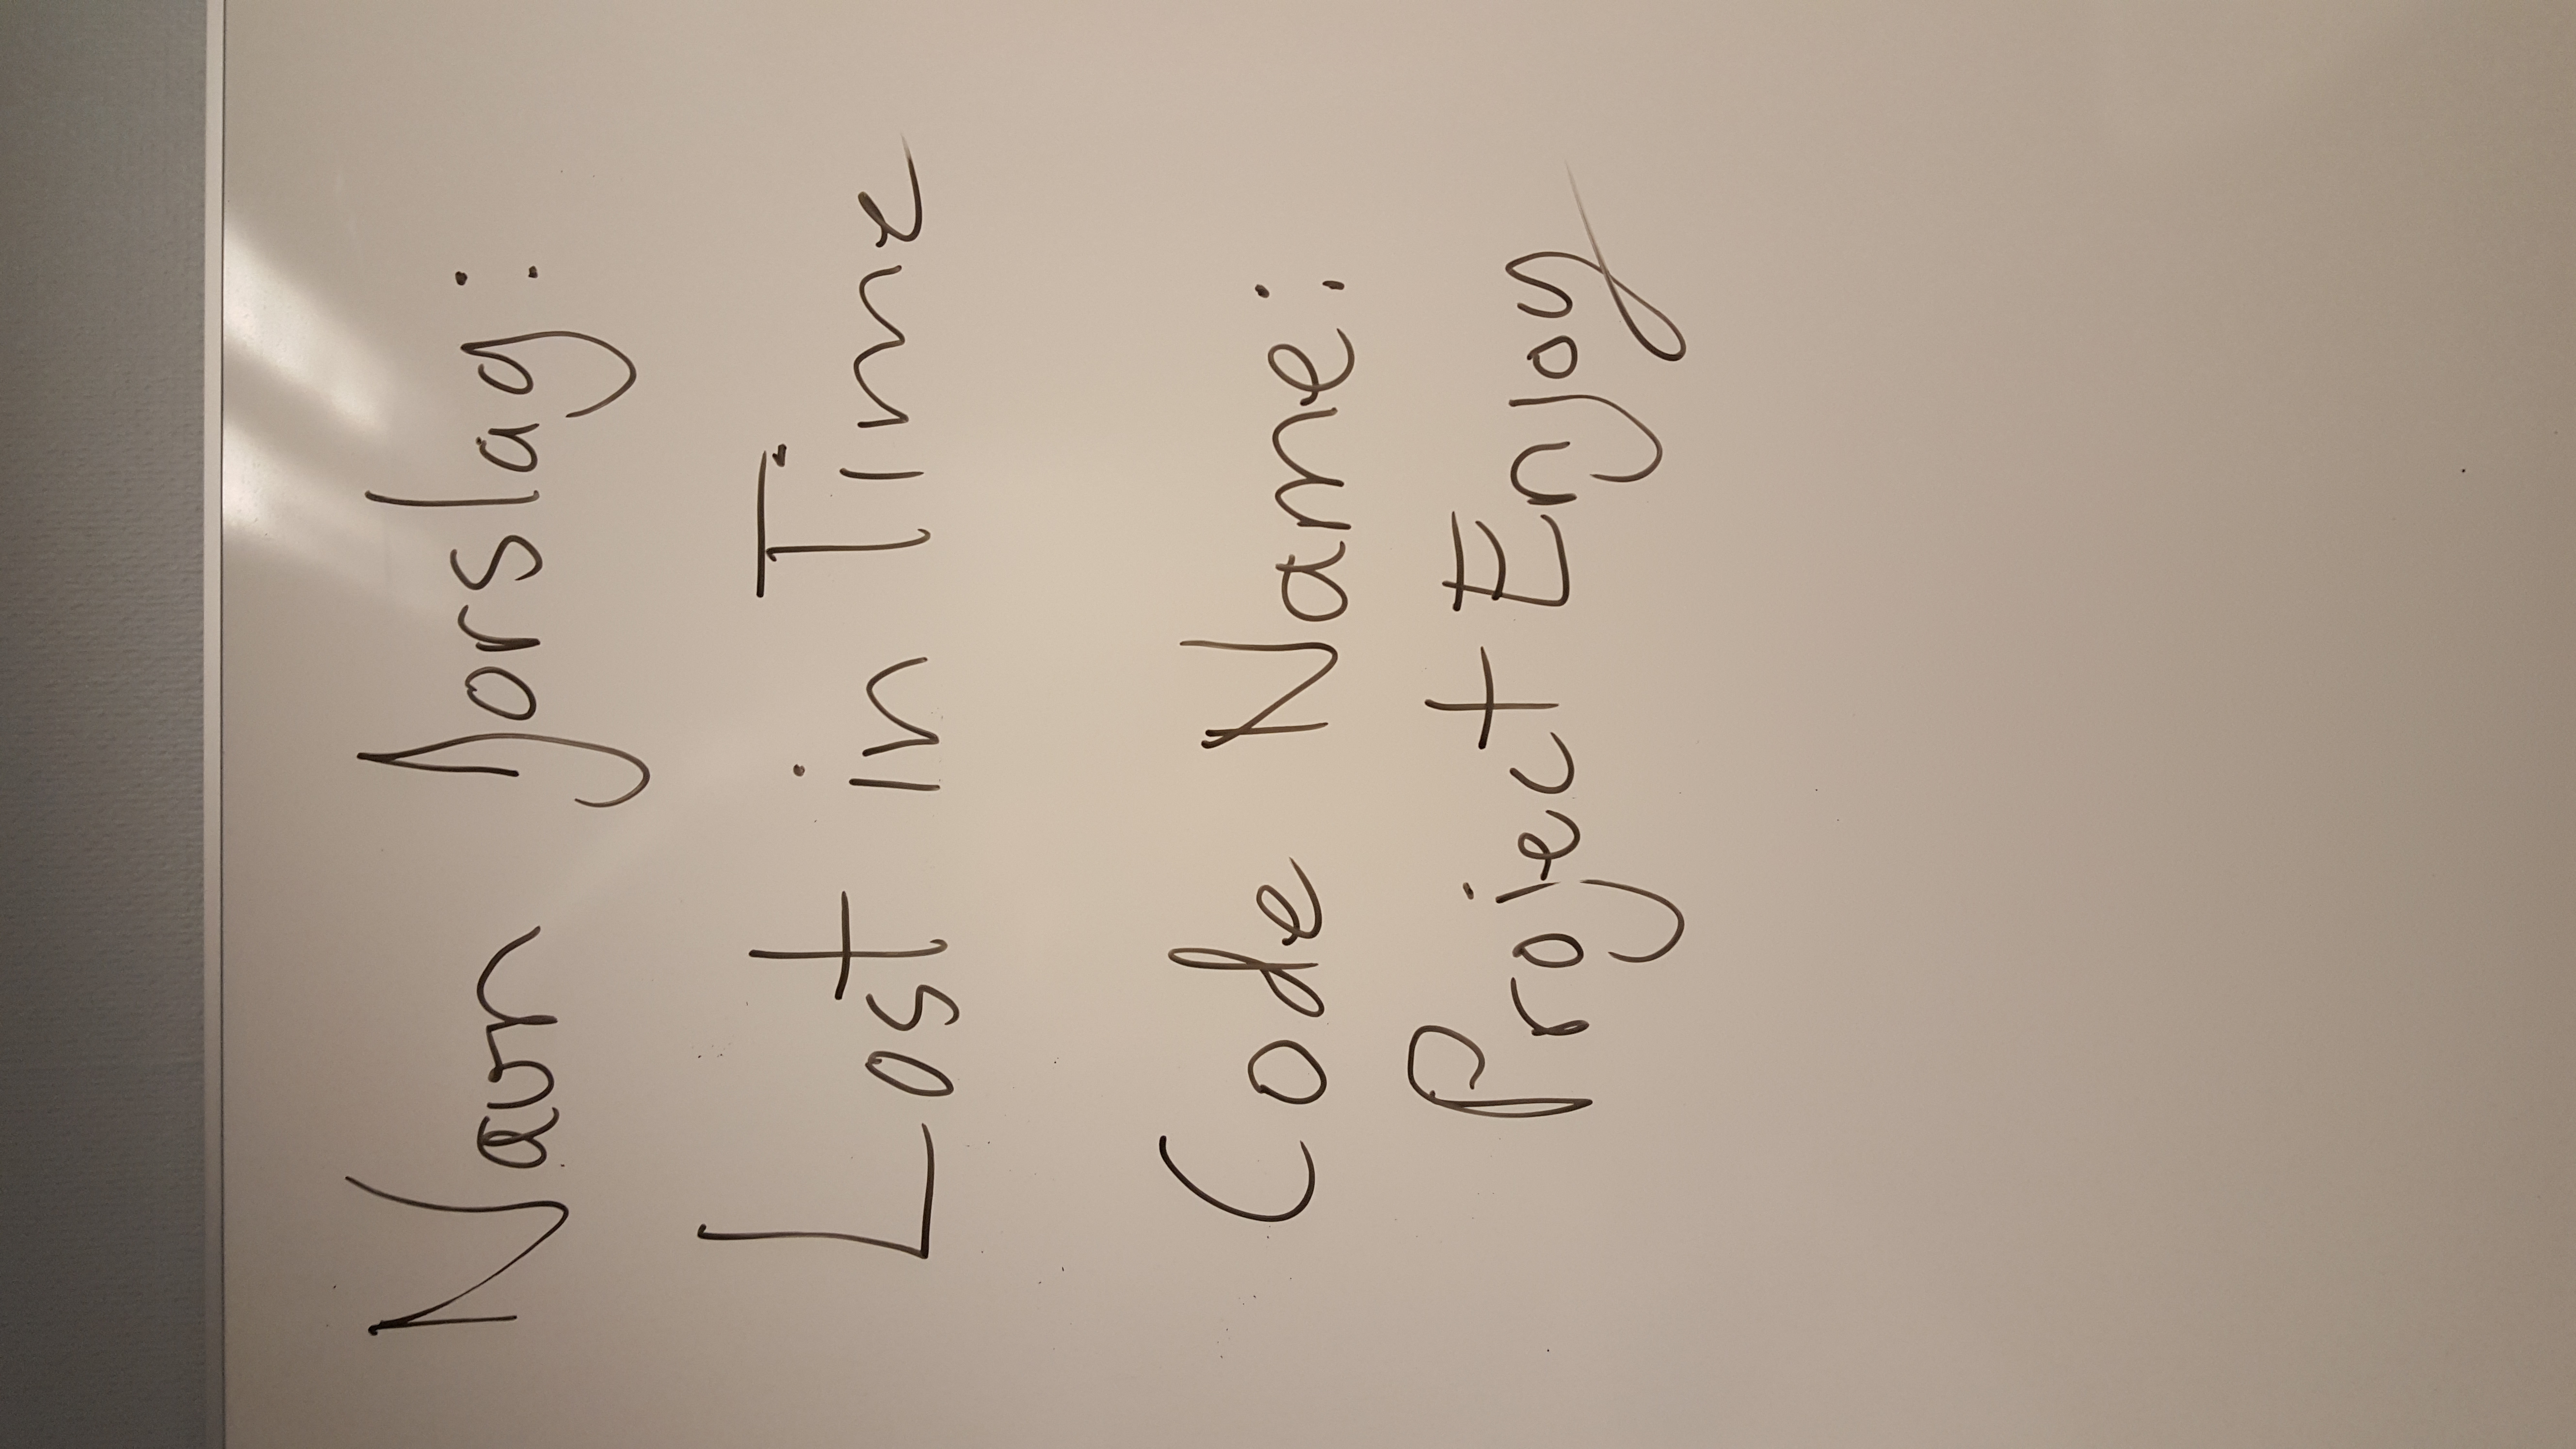 Navn forslag:
Lost in Time
Code Name:
Project Enjoy